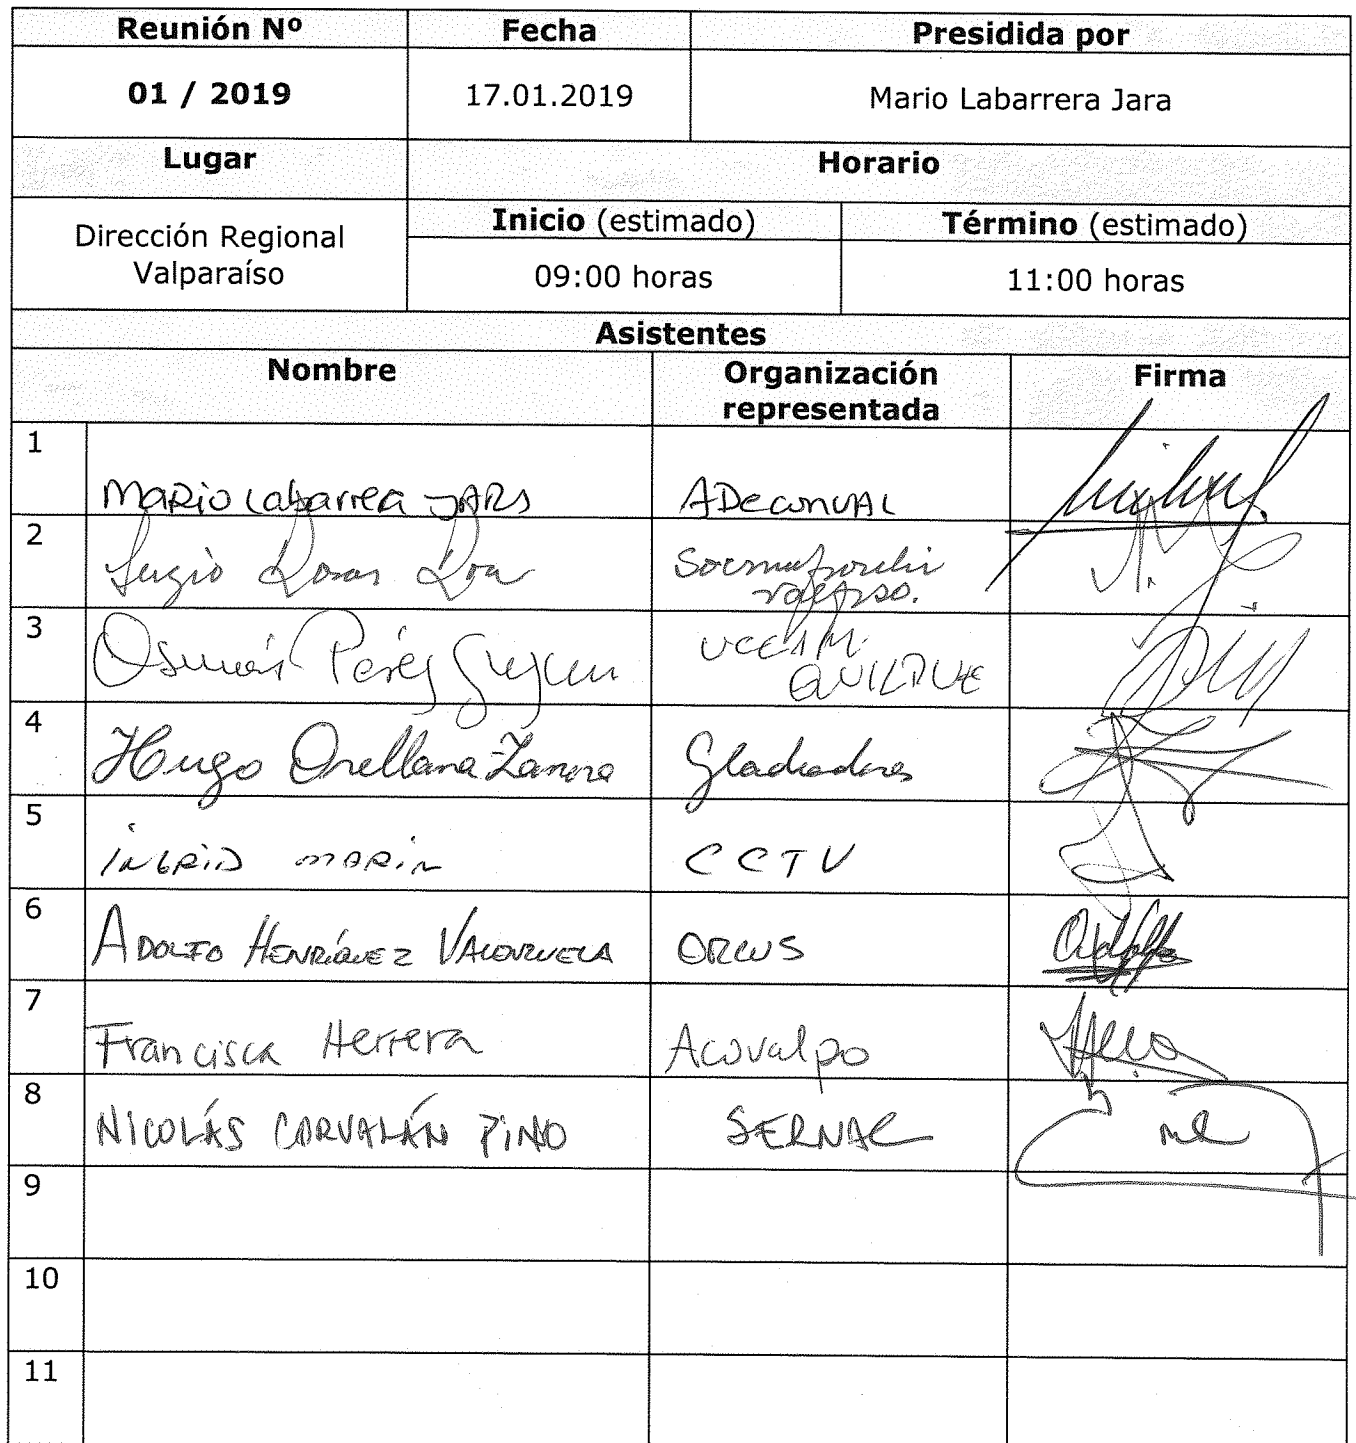 Reunión Nº Fecha Presidida por
01 / 2019 17.01.2019 Mario Labarrera Jara
Lugar Horario
Dirección Regional Valparaíso
Inicio (estimado) Término (estimado)
09:00 horas 11:00 horas
Asistentes
Nombre Organización representada Firma
1 Mario Labarrera JARA ADECONVAL
2 Sergio Rosas Roa
3 Osmán Pérez QUILPUE
4 Hugo Orellana Gladiadores
5 INGRID MARIN CCTV
6 ADOLFO HENRÍQUEZ VALENZUELA ORCUS Adolfo
7 Francisca Herrera Acovalpo
8 NICOLÁS CORVALÁN PINO SERNAC
9
10
11